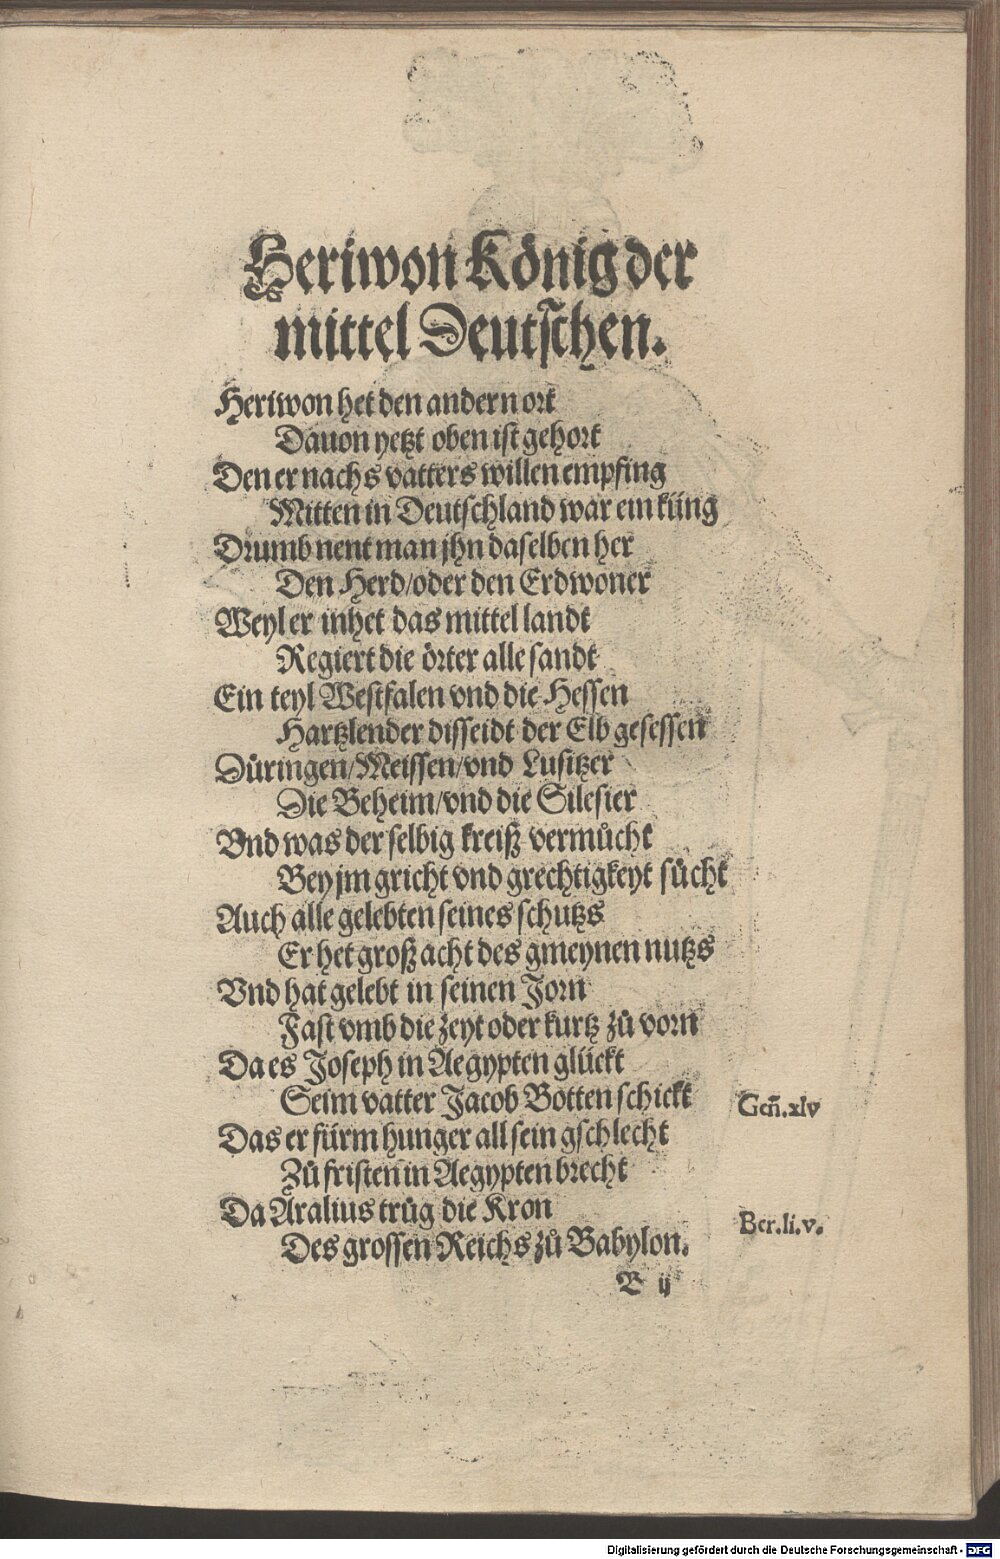 Heriwon König der
mittel Deutschen.
Heriwon het den andern ort
Dauon yetzt oben ist gehort
Den er nachs vatters willen empfing
Mitten in Deutschland war ein küng
Drumb nent man jhn daselben her
Den Herd/oder den Erdwoner
Weyl er inhet das mittel landt
Regiert die örter alle sandt
Ein teyl Westfalen vnd die Hessen
Hartzlender disseidt der Elb gesessen
Düringen/Meissen/vnd Lusitzer
Die Beheim/vnd die Silesier
Vnd was der selbig kreiß vermücht
Bey jm gricht vnd grechtigkeyt sücht
Auch alle gelebten seines schutzs
Er het groß acht des gmeynen nutzs
Vnd hat gelebt in seinen Jorn
Fast vmb die zeyt oder kurtz zů vorn
Da es Joseph in Aegypten glückt
Seim vatter Jacob Botten schickt
Gen̄.xlv
Das er fürm hunger all sein gschlecht
Zů fristen in Aegypten brecht
Da Aralius trůg die Kron
Ber.li.v.
Des grossen Reichs zů Babylon.
B ij
Digitalisierung gefördert durch die Deutsche Forschungsgemeinschaft - DFG